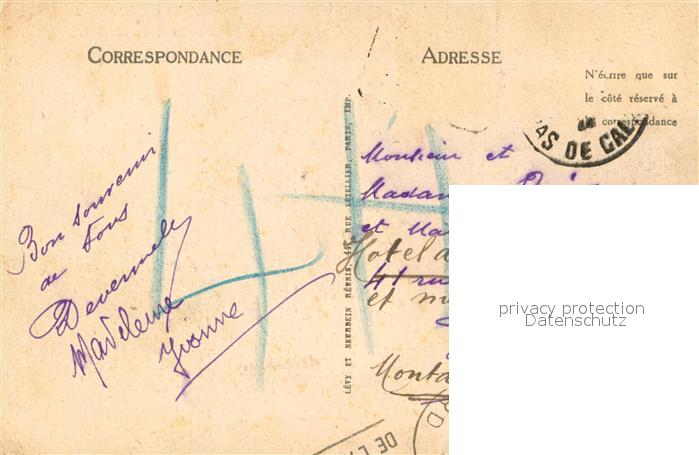 CORRESPONDANCE
ADRESSE
N'écrire que sur
le côté réservé à
la correspondance
AS DE CAL
Bon souvenir
de tous
Madeleine
Yvonne
LÉVY ET NEURDEIN RÉUNIS, 44, RUE LETELLIER, PARIS, IMP.
Monsieur et
Madam
et Ma
Hotel d
41 ru
et
Monta
privacy protection
Datenschutz